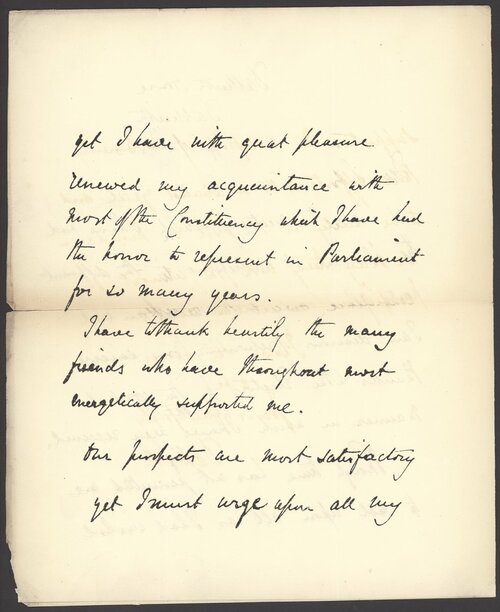 yet I have with great pleasure
renewed my acquaintance with
most of the Constituency which I have had
the honor to represent in Parliament
for so many years.
I have to thank heartily the many
friends who have throughout most
energetically supported me.
Our prospects are most satisfactory
yet I must urge upon all my